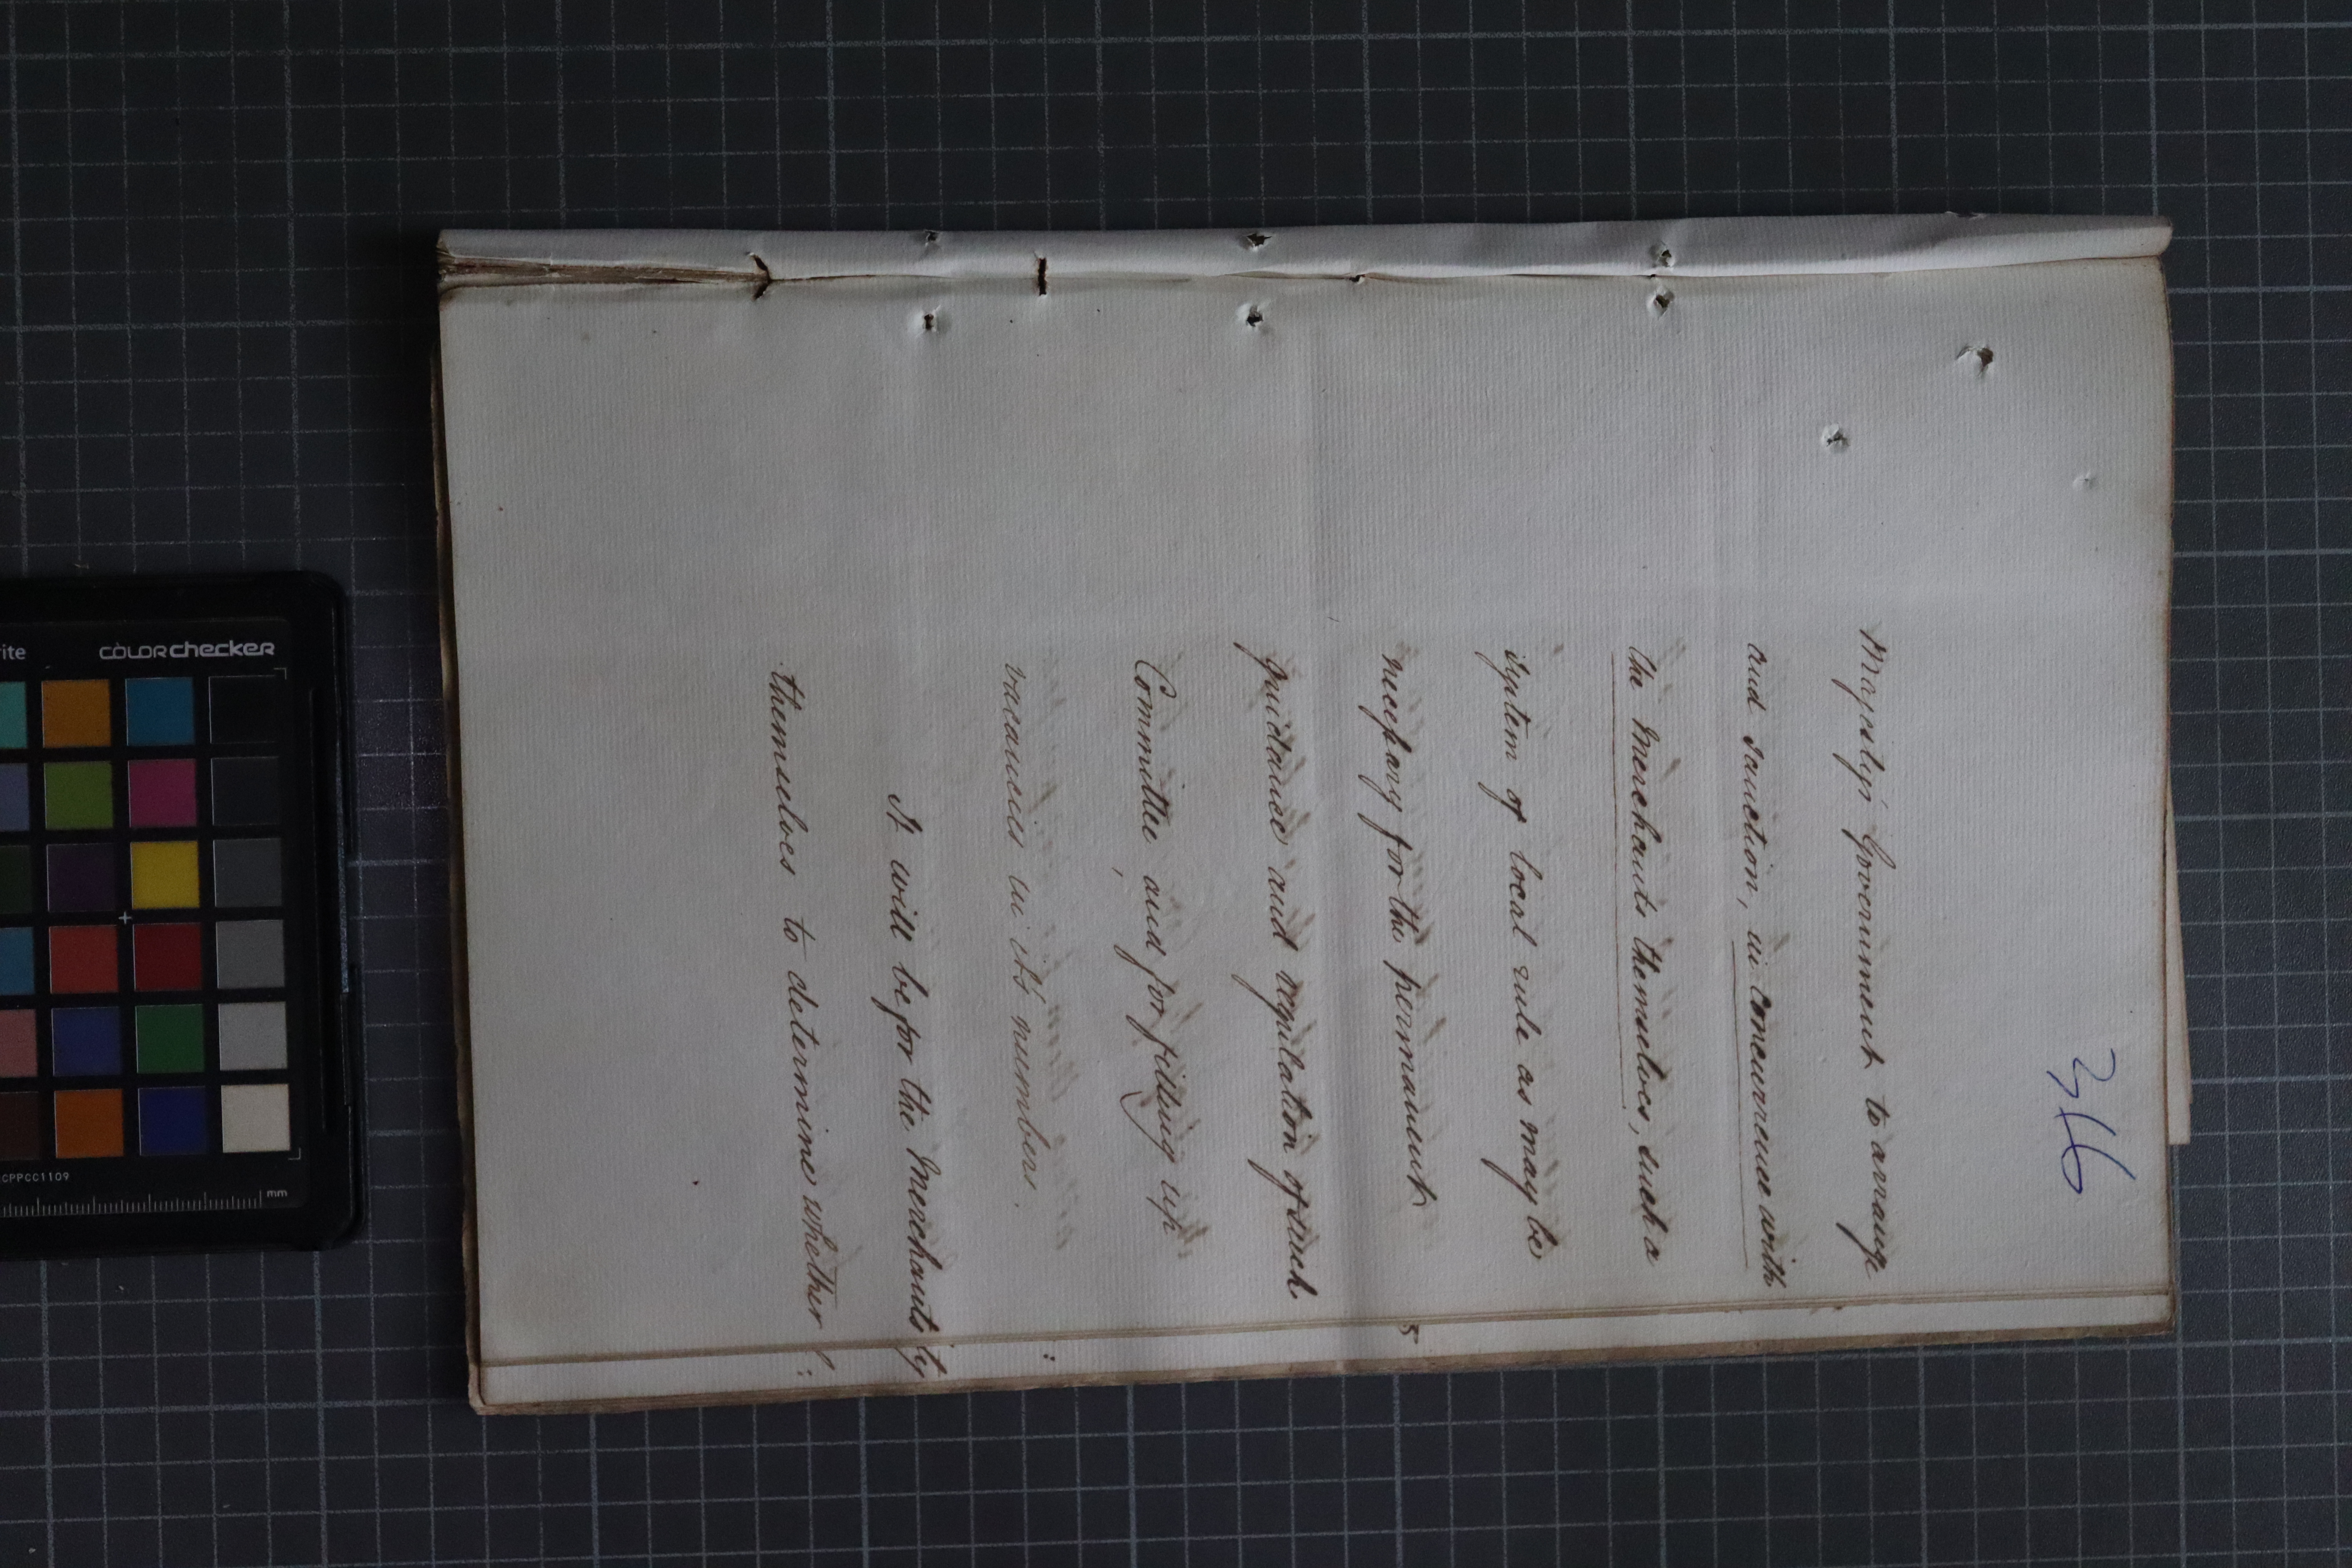 316
Majesty's Government to arrange
and sanction, in concurrence with
the Merchants themselves, such a
system of local rule as may be
necessary for the permanent
guidance and regulation of such
Committee, and for filling up
vacancies in its numbers.
It will be for the Merchants
themselves to determine whether
5
ty
rite COLORchecker
CPPCC1109
mm